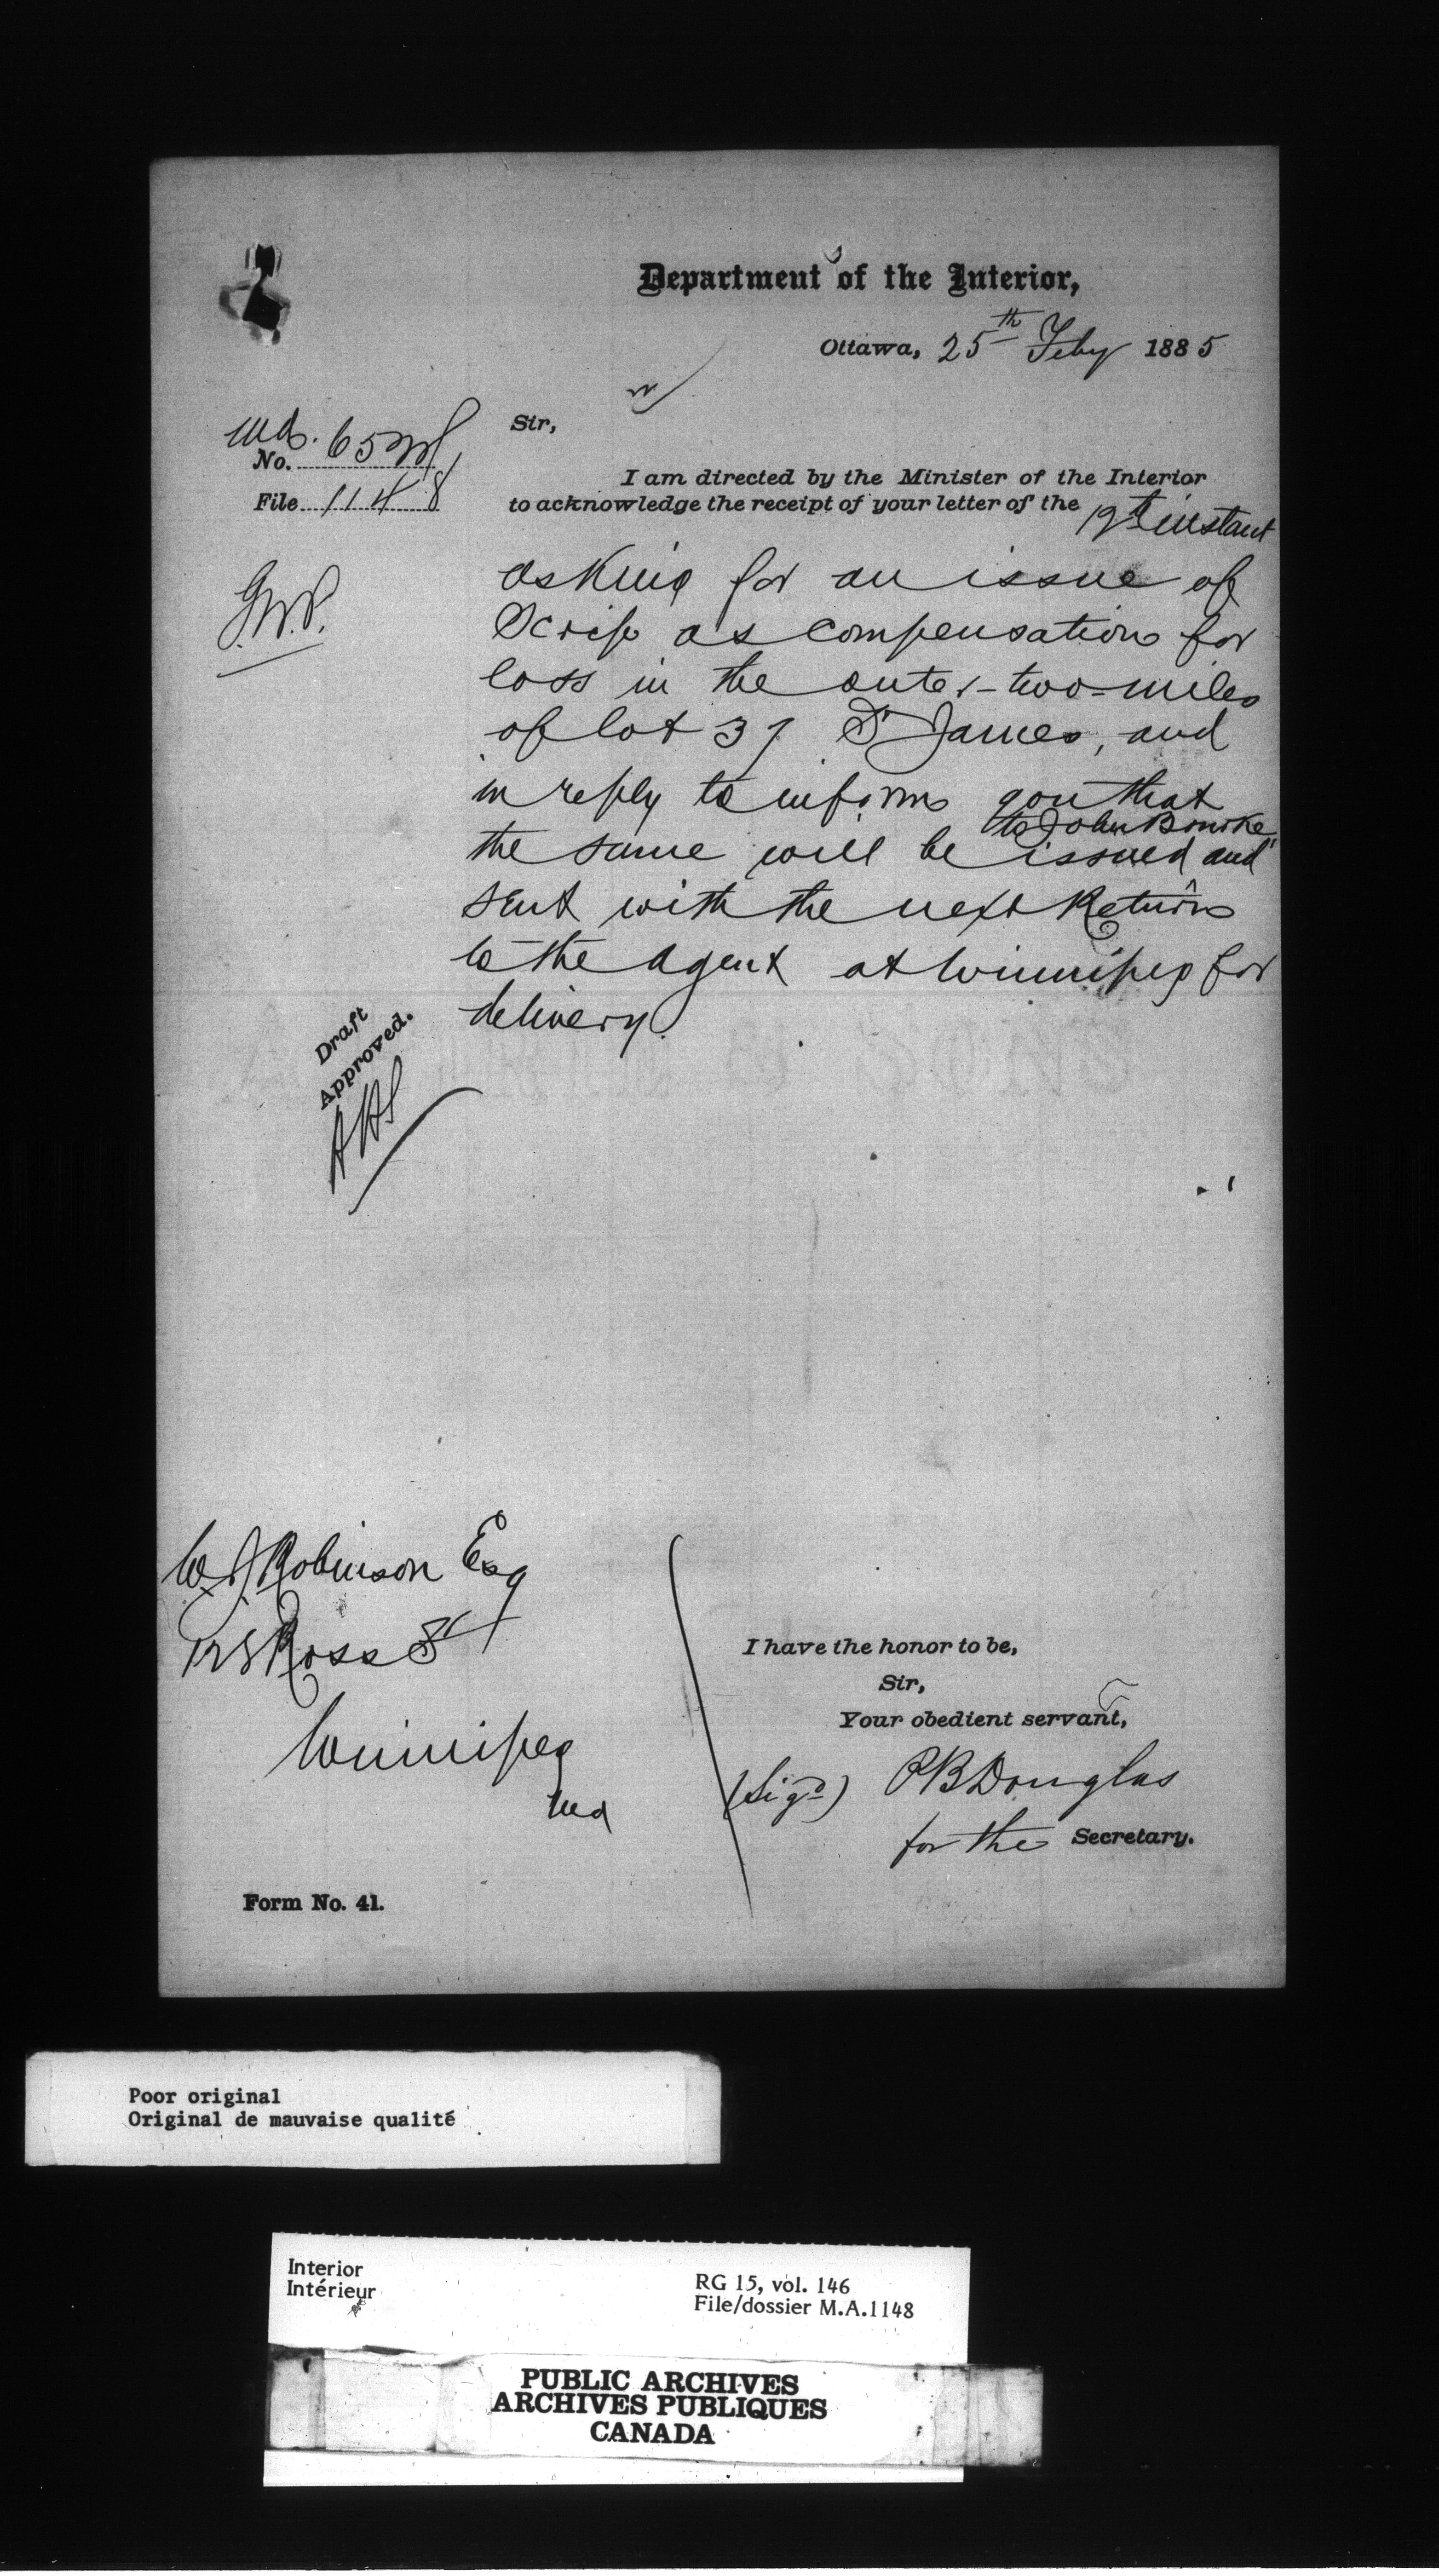 Department of the Interior,
Ottawa, 25th Feby 1885
Sir,
No. 65
File 1148
I am directed by the Minister of the Interior
to acknowledge the receipt of your letter of the 19th instant
G.W.P.
asking for an issue of
Scrip as compensation for
loss in the outer-two-miles
of lot 37 St James, and
in reply to inform you that
to John Bourke
the same will be issued and
sent with the next Return
to the Agent at Winnipeg for
delivery.
Draft
Approved.
W J Robinson Esq
Ross St
Winnipeg
I have the honor to be,
Sir,
Your obedient servant,
(Sigd) P B Douglas
for the Secretary.
Form No. 41.
Poor original
Original de mauvaise qualité
Interior
Intérieur
RG 15, vol. 146
File/dossier M.A.1148
PUBLIC ARCHIVES
ARCHIVES PUBLIQUES
CANADA